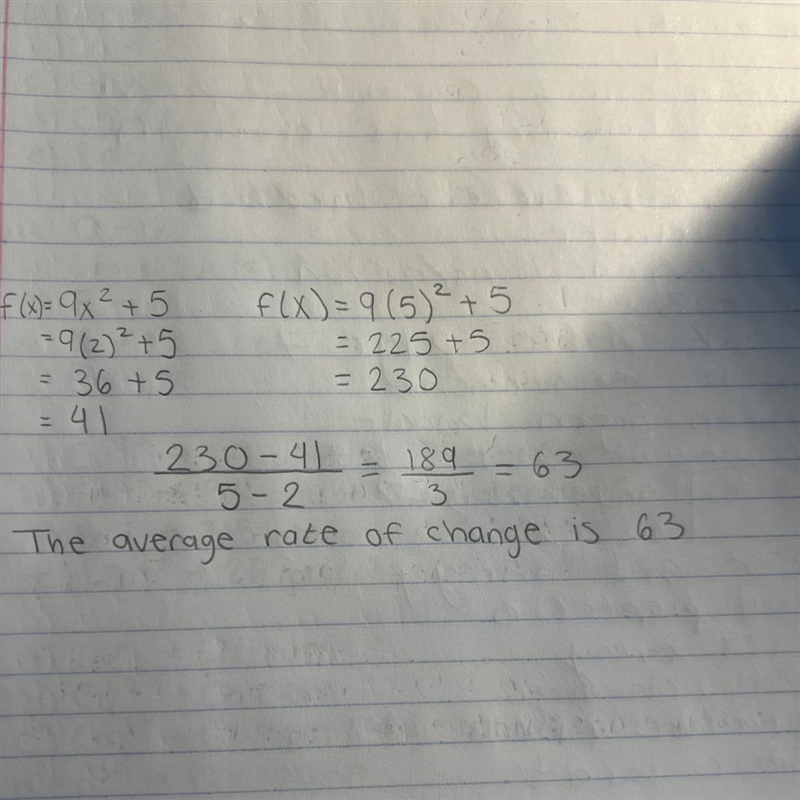 f(x)= 9x² + 5
= 9(2)² + 5
= 36 + 5
= 41
f(x) = 9(5)² + 5
= 225 + 5
= 230
230 - 41 / 5 - 2 = 189 / 3 = 63
The average rate of change is 63